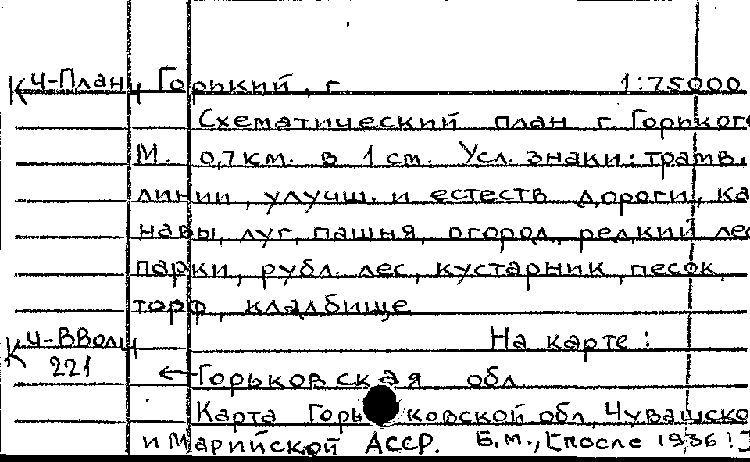 К Ч-Планы Горький, г. 1:75000
Схематический план г. Горького
М. 0,7 км. в 1 см. Усл. знаки: трамв.
линии, улучш. и естеств дороги, ка
навы, луг, пашня, огород, редкий лес
парки, рубл. лес, кустарник, песок,
торф, кладбище
К Ч-ВВолц На карте:
221 ←Горьковская обл
Карта Горьковской обл, Чувашско
и Марийской АССР. Б.м., [после 1936!]